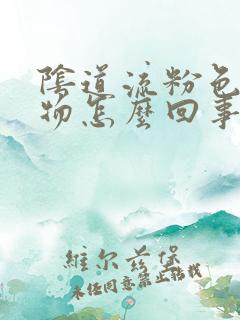 陰道流粉色
物怎麼回事
維尔兹堡
未经同意禁止转载